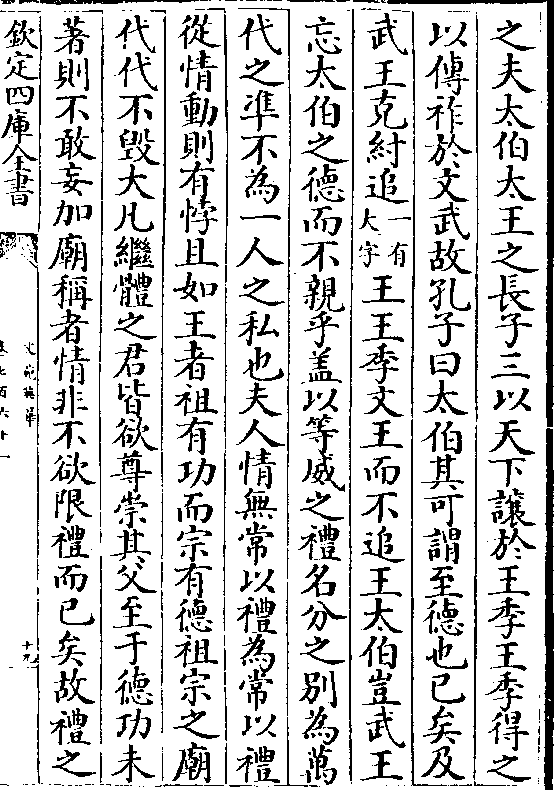 之夫太伯太王之長子三以天下讓於王季王季得之
以傳祚於文武故孔子曰太伯其可謂至德也已矣及
武王克紂追一有大字王王季文王而不追王太伯豈武王
忘太伯之德而不親乎盖以等威之禮名分之别為萬
代之準不為一人之私也夫人情無常以禮為常以禮
從情動則有悖且如王者祖有功而宗有德祖宗之廟
代代不毁大凡繼體之君皆欲尊崇其父至于德功未
著則不敢妄加廟稱者情非不欲限禮而已矣故禮之
欽定四庫全書
文苑英華
卷七百六十一
十九